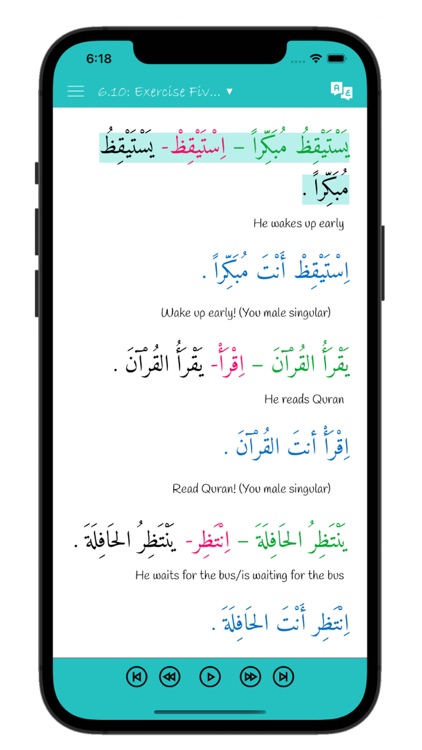 6:18
6.10: Exercise Fiv... ▼
يَسْتَيْقِظُ مُبَكِّراً – اِسْتَيْقِظْ- يَسْتَيْقِظُ
مُبَكِّراً .
He wakes up early
اِسْتَيْقِظْ أَنْتَ مُبَكِّراً .
Wake up early! (You male singular)
يَقْرَأُ القُرْآنَ – اِقْرَأْ- يَقْرَأُ القُرْآنَ .
He reads Quran
اِقْرَأْ أنتَ القُرْآنَ .
Read Quran! (You male singular)
يَنْتَظِرُ الحَافِلَةَ – اِنْتَظِر- يَنْتَظِرُ الحَافِلَةَ .
He waits for the bus/is waiting for the bus
اِنْتَظِر أَنْتَ الحَافِلَةَ .